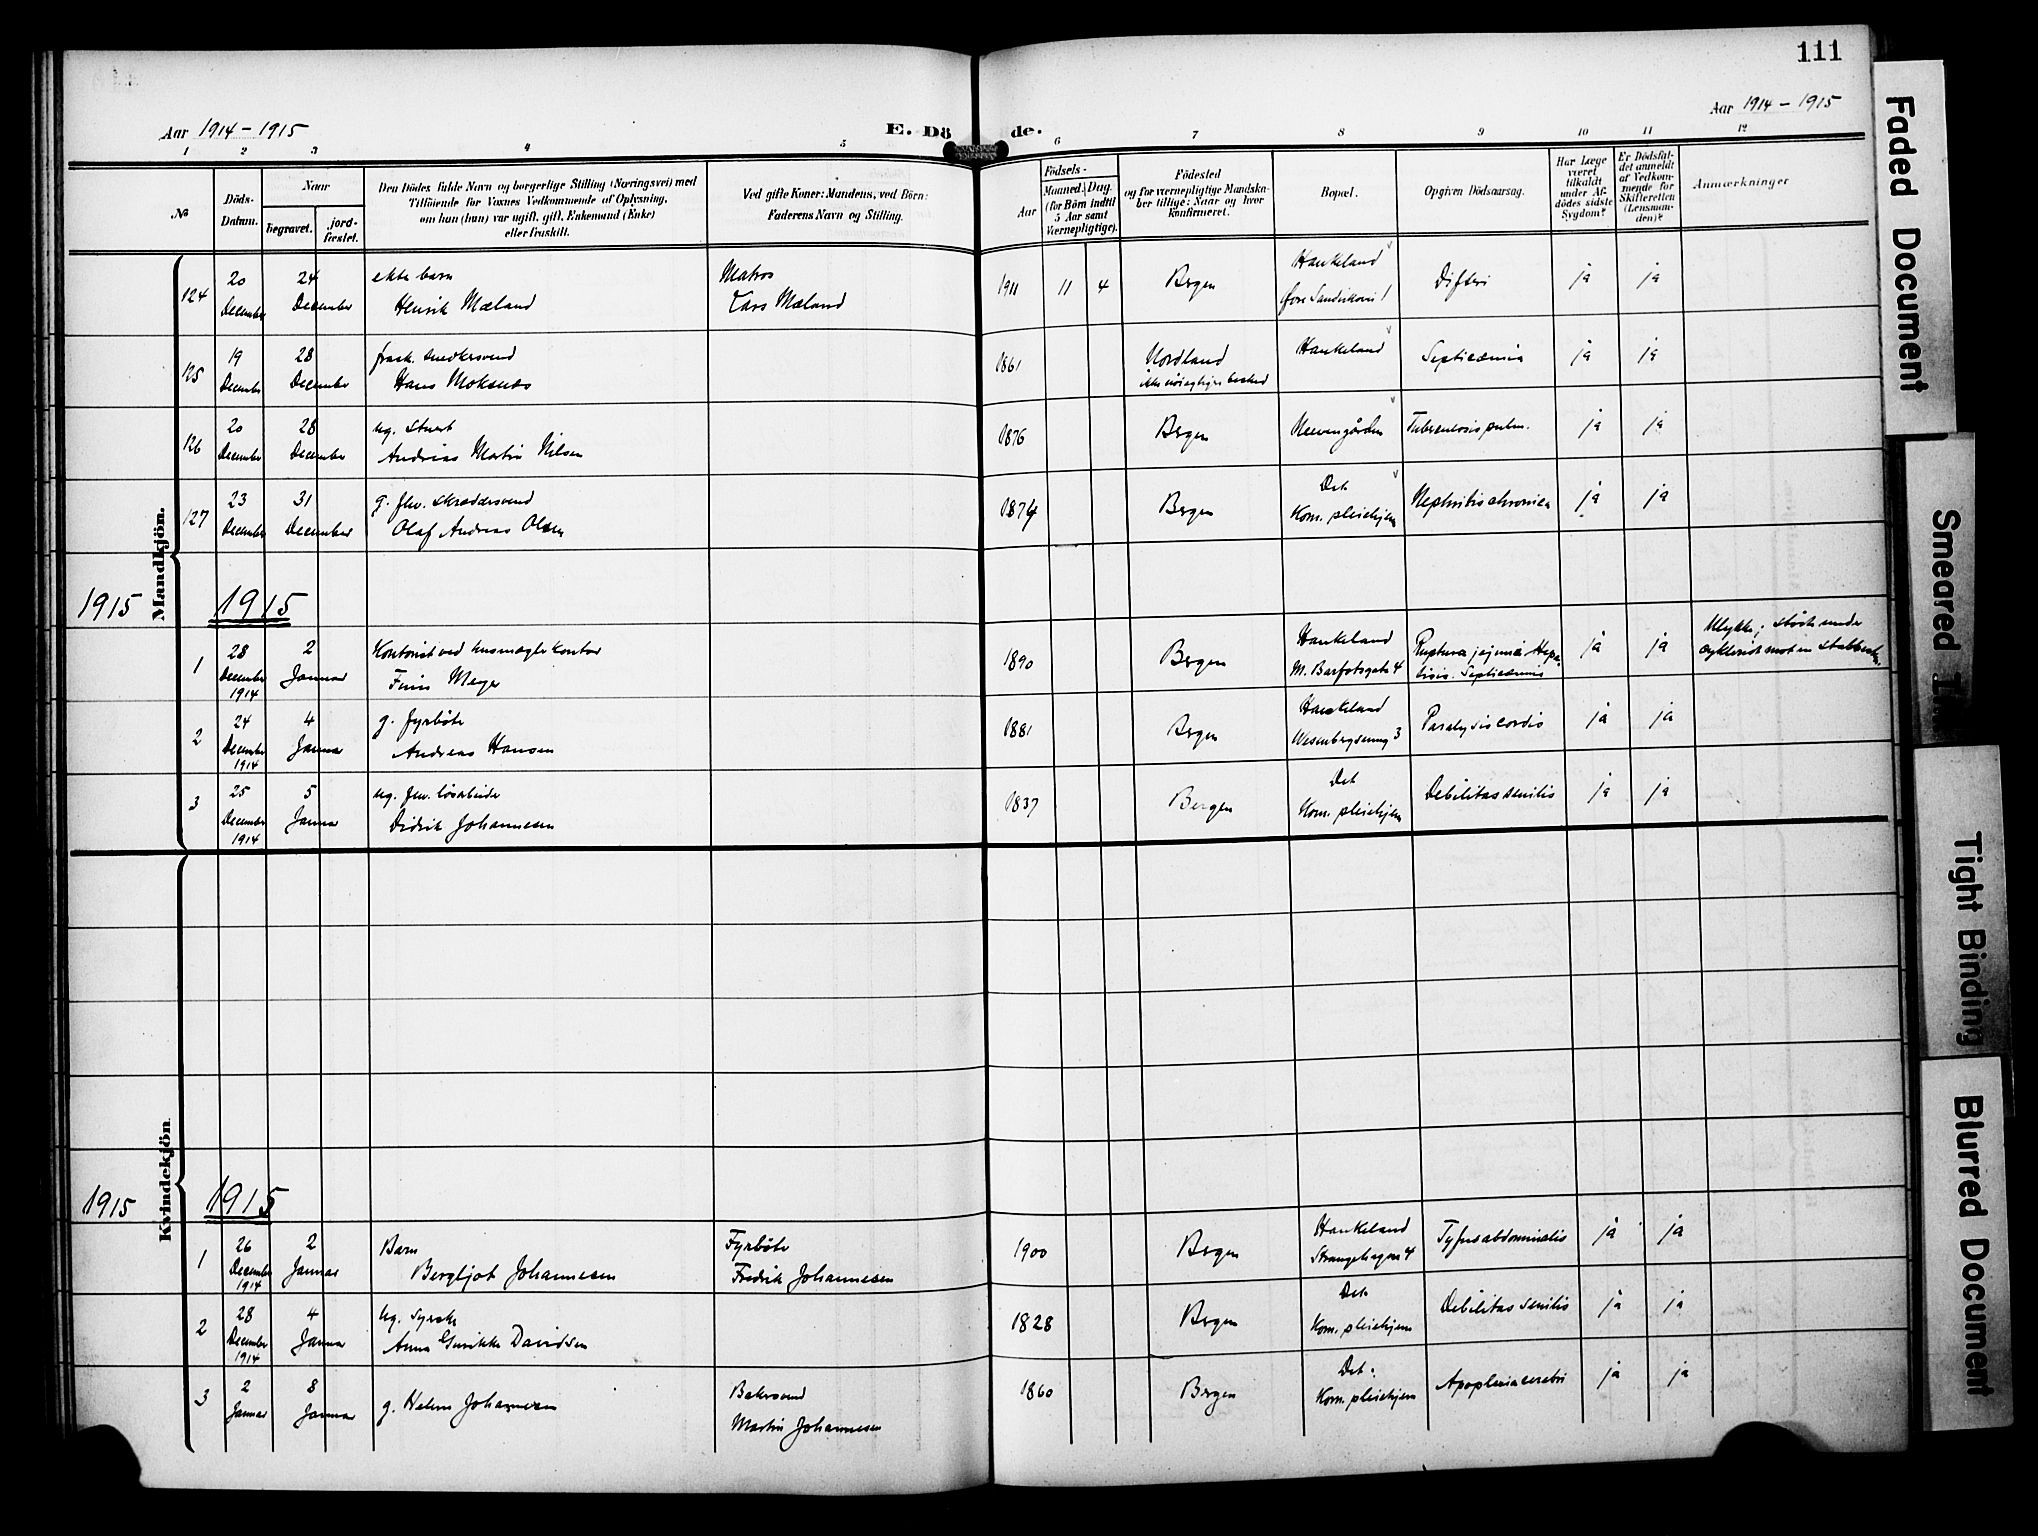 111
Aar 1914 - 1915
E. Dö de.
Aar 1914 - 1915
1 2 3 4 5 6 7 8 9 10 11 12
№
Döds-
Datum.
Naar
begravet.
jord-
fæstet.
Den Dödes fulde Navn og borgerlige Stilling (Næringsvei) med
Tilföiende for Voxnes Vedkommende af Oplysning,
om han (hun) var ugift, gift, Enkemand (Enke)
eller fraskilt.
Ved gifte Koner: Mandens, ved Börn:
Faderens Navn og Stilling.
Födsels-
Aar
Maaned. Dag.
(for Börn indtil
5 Aar samt
Værnepligtige).
Födested
og for værnepligtige Mandska-
ber tillige: Naar og hvor
konfirmeret.
Bopæl.
Opgiven Dödsaarsag.
Har Læge
været
tilkaldt
under Af-
dödes sidste
Sygdom?
Er Dödsfal-
det anmeldt
af Vedkom-
mende for
Skifteretten
(Lensman-
den)?
Anmærkninger
Mandkjön.
124 20 December 24 December ekte barn Henrik Mæland Matros Lars Mæland 1911 11 4 Bergen Haukeland Øvre Sandviksvei 1 Difteri ja ja
125 19 December 28 December frask. snedkersvend Hans Moksnes 1861 Nordland ikke nøiagtigere besked Haukeland Septicæmia ja ja
126 20 December 28 December ug. stuert Andreas Martin Nilsen 1876 Bergen Neevengården Tuberculosis pulm. ja ja
127 23 December 31 December g. fhv. skræddersvend Olaf Andreas Olsen 1874 Bergen Det Kom. pleiehjem Nephritis chronica ja ja
1915 1915
1 28 December 1914 2 Januar Kontorist ved husmæglerkontor Finn Meyer 1890 Bergen Haukeland M. Barfotsgate 4 Ruptura jejunia Septicæmia ja ja Ulykke; stødt under cykleridt mot en
2 24 December 1914 4 Januar g. fyrbøter Andreas Hansen 1881 Bergen Haukeland Wesenbergsmug 3 Paralysis cordis ja ja
3 25 December 1914 5 Januar ug. fhv. løsarbeider Didrik Johannesen 1837 Bergen Det Kom. pleiehjem Debilitas senilis ja ja
Kvindekjön
1915 1915
1 26 December 1914 2 Januar Barn Bergljot Johannesen Fyrbøter Fredrik Johannesen 1900 Bergen Haukeland Strangehagen 4 Tyfus abdominalis ja ja
2 28 December 1914 4 Januar ug. syerske Anna Gurikke Davidsen 1828 Bergen Det Kom. pleiehjem Debilitas senilis ja ja
3 2 Januar 8 Januar g. Helene Johannesen Bakersvend Martin Johannesen 1860 Bergen Det Kom. pleiehjem Apoplexia cerebri ja ja
Faded Document
Smeared
Tight Binding
Blurred Document